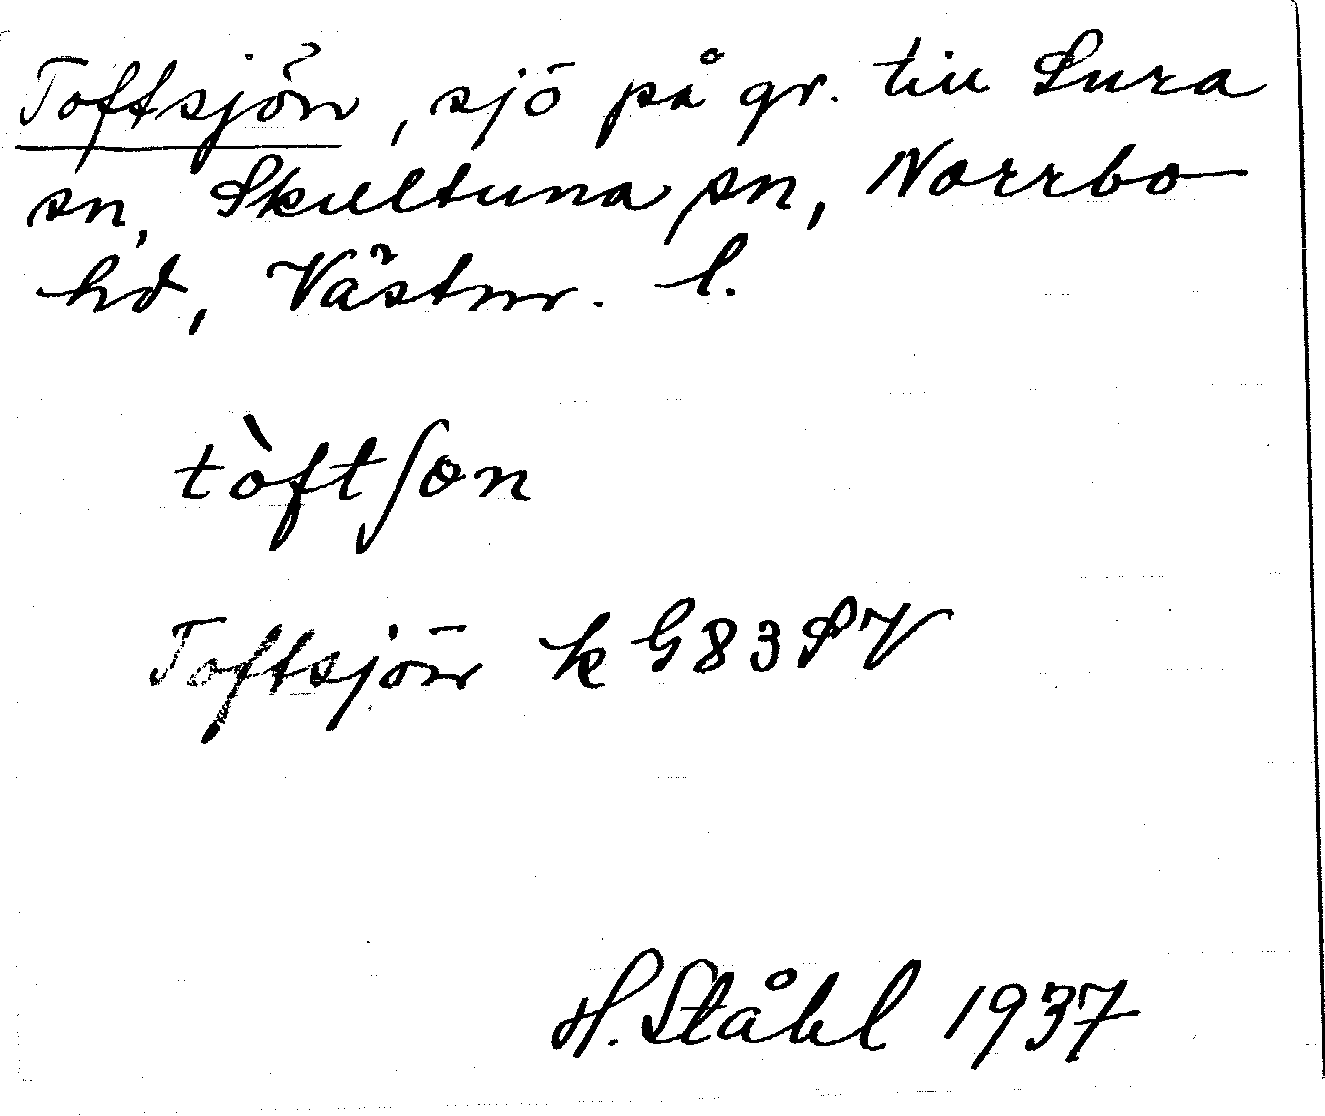 Toftsjön, sjö på gr. till Sura
sn, Skultuna sn, Norrbo
hd, Västm. l.
tòftʃøn
Toftsjön k G 83 SV
H. Ståhl 1937